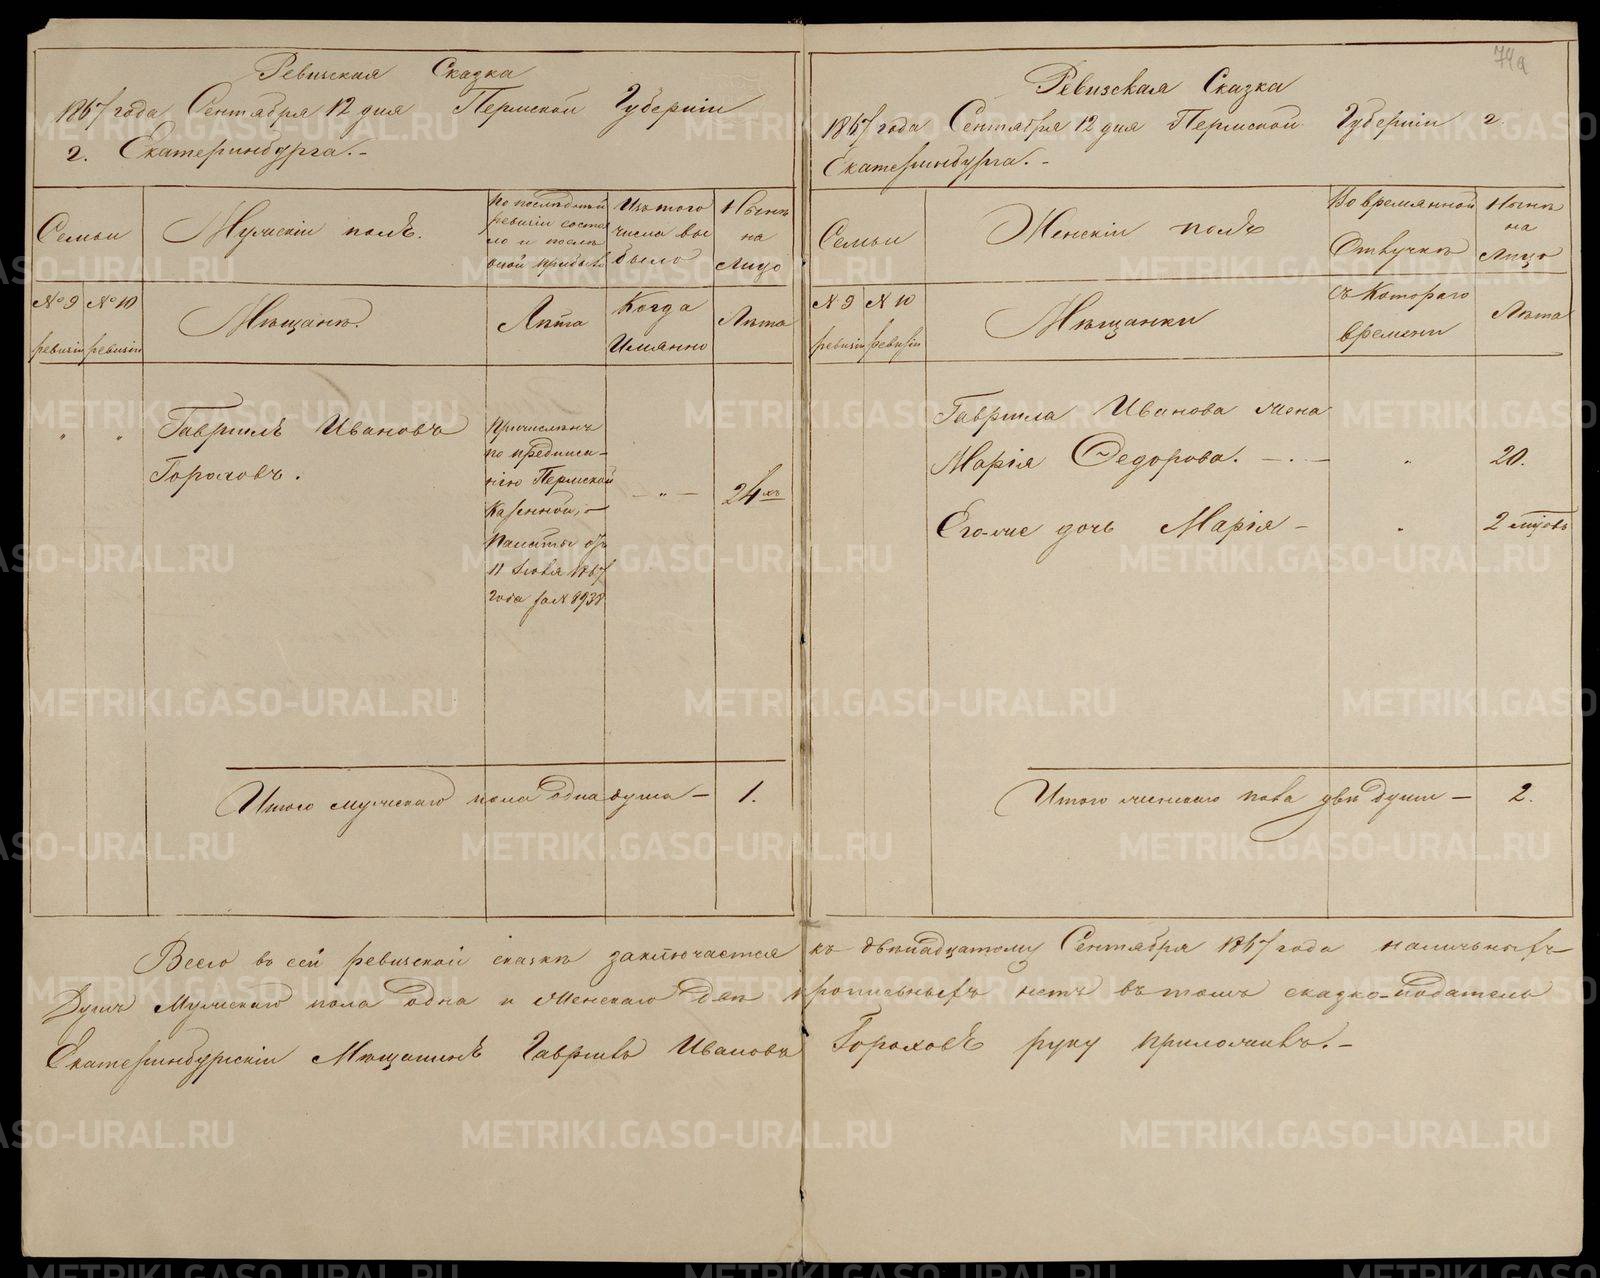 74а
Ревизская Сказка
1867 года Сентября 12 дня Пермской Губернiи
г. Екатеринбурга.-
Семьи
Мужскiй полъ.
По последней
ревизiи состоя
ло и после
оной прибыло
Изъ того
числа вы
было
Ныне
на
Лицо
№ 9
ревизiи
№ 10
ревизiи
Мѣщане.
Лѣта
Когда
Имянно
Лѣта
" "
Гаврилъ Ивановъ
Гороховъ.
Причисленъ
по предписа-
нiю Пермской
Казенной,-
Палаты отъ
11 Iюля 1867
года за № 8938
- " -
24 хъ
Итого мужскаго пола одна душа - 1.
Ревизская Сказка
1867 года Сентября 12 дня Пермской Губернiи г.
Екатеринбурга. -
Семьи
Женскiй полъ
Во времянной
Отлучкѣ
Нынѣ
на
Лицо
№ 9
ревизiи
№ 10
ревизiи
Мѣщанки
Съ Котораго
времени
Лѣта
Гаврила Иванова жена
Марiя Федорова. - . - " 20.
Его-же дочь Марiя - " 2 мѣсяц
Итого женскаго пола две души - 2.
Всего въ сей ревизской сказкѣ заключается къ двѣнадцатому Сентября 1867 года наличныхъ
Душъ Мужскаго пола одна и Женскаго две прописныхъ нетъ въ томъ сказко-податель
Екатеринбургскiй Мѣщанинъ Гаврилъ Ивановъ Гороховъ руку приложилъ.-
METRIKI.GASO-URAL.RU